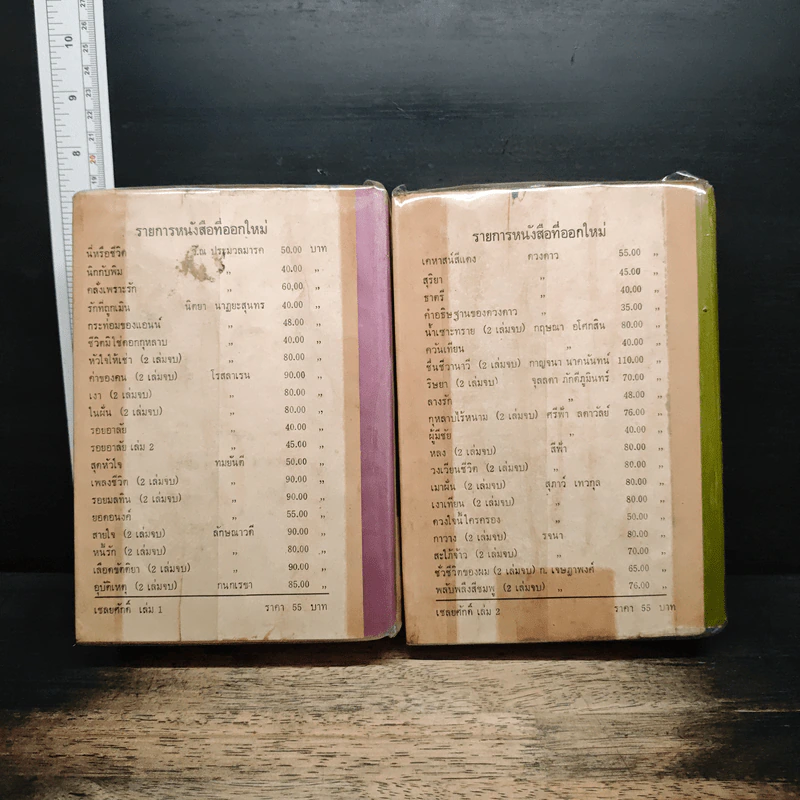 รายการหนังสือที่ออกใหม่
นี่หรือชีวิต ว.ณ ประมวลมารค 50.00 บาท
นิกกับพิม " 40.00 "
คลั่งเพราะรัก " 60.00 "
รักที่ถูกเมิน นิตยา นาฏยะสุนทร 40.00 "
กระท่อมของแอนน์ " 48.00 "
ชีวิตมิใช่ดอกกุหลาบ " 40.00 "
หัวใจให้เช่า (2 เล่มจบ) " 80.00 "
ค่าของคน (2 เล่มจบ) โรสลาเรน 90.00 "
เงา (2 เล่มจบ) " 80.00 "
ในฝัน (2 เล่มจบ) " 80.00 "
รอยอาลัย " 40.00 "
รอยอาลัย เล่ม 2 " 45.00 "
สุดหัวใจ ทมยันตี 50.00 "
เพลงชีวิต (2 เล่มจบ) " 90.00 "
รอยมลทิน (2 เล่มจบ) " 90.00 "
ยอดอนงค์ " 55.00 "
สายใจ (2 เล่มจบ) ลักษณาวดี 90.00 "
หนี้รัก (2 เล่มจบ) " 80.00 "
เลือดขัตติยา (2 เล่มจบ) " 90.00 "
อุบัติเหตุ (2 เล่มจบ) กนกเรขา 85.00 "
เชลยศักดิ์ เล่ม 1 ราคา 55 บาท
รายการหนังสือที่ออกใหม่
เคหาสน์สีแดง ดวงดาว 55.00 "
สุริยา " 45.00 "
ชาตรี " 40.00 "
คำอธิษฐานของดวงดาว " 35.00 "
น้ำเซาะทราย (2 เล่มจบ) กฤษณา อโศกสิน 80.00 "
ควันเทียน " 40.00 "
ชื่นชีวานาวี (2 เล่มจบ) กาญจนา นาคนันทน์ 110.00 "
ริษยา (2 เล่มจบ) จุลลดา ภักดีภูมินทร์ 70.00 "
ลางรัก " 48.00 "
กุหลาบไร้หนาม (2 เล่มจบ) ศรีฟ้า ลดาวัลย์ 76.00 "
ผู้มีชัย " 40.00 "
หลง (2 เล่มจบ) สีฟ้า 80.00 "
วงเวียนชีวิต (2 เล่มจบ) " 80.00 "
เมาฝัน (2 เล่มจบ) สุภาว์ เทวกุล 80.00 "
เงาเทียน (2 เล่มจบ) " 80.00 "
ดวงใจนี้ใครครอง " 50.00 "
กาวาง (2 เล่มจบ) รจนา 80.00 "
สะใภ้จ้าว (2 เล่มจบ) " 70.00 "
ชั่วชีวิตของผม (2 เล่มจบ) ก. เจษฎาพงศ์ 65.00 "
พลับพลึงสีชมพู (2 เล่มจบ) " 76.00 "
เชลยศักดิ์ เล่ม 2 ราคา 55 บาท